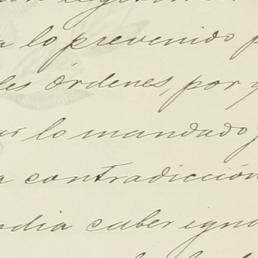 a lo prevenido p
les órdenes, por q
ar lo mandado y
a contradicción
odia caber igno